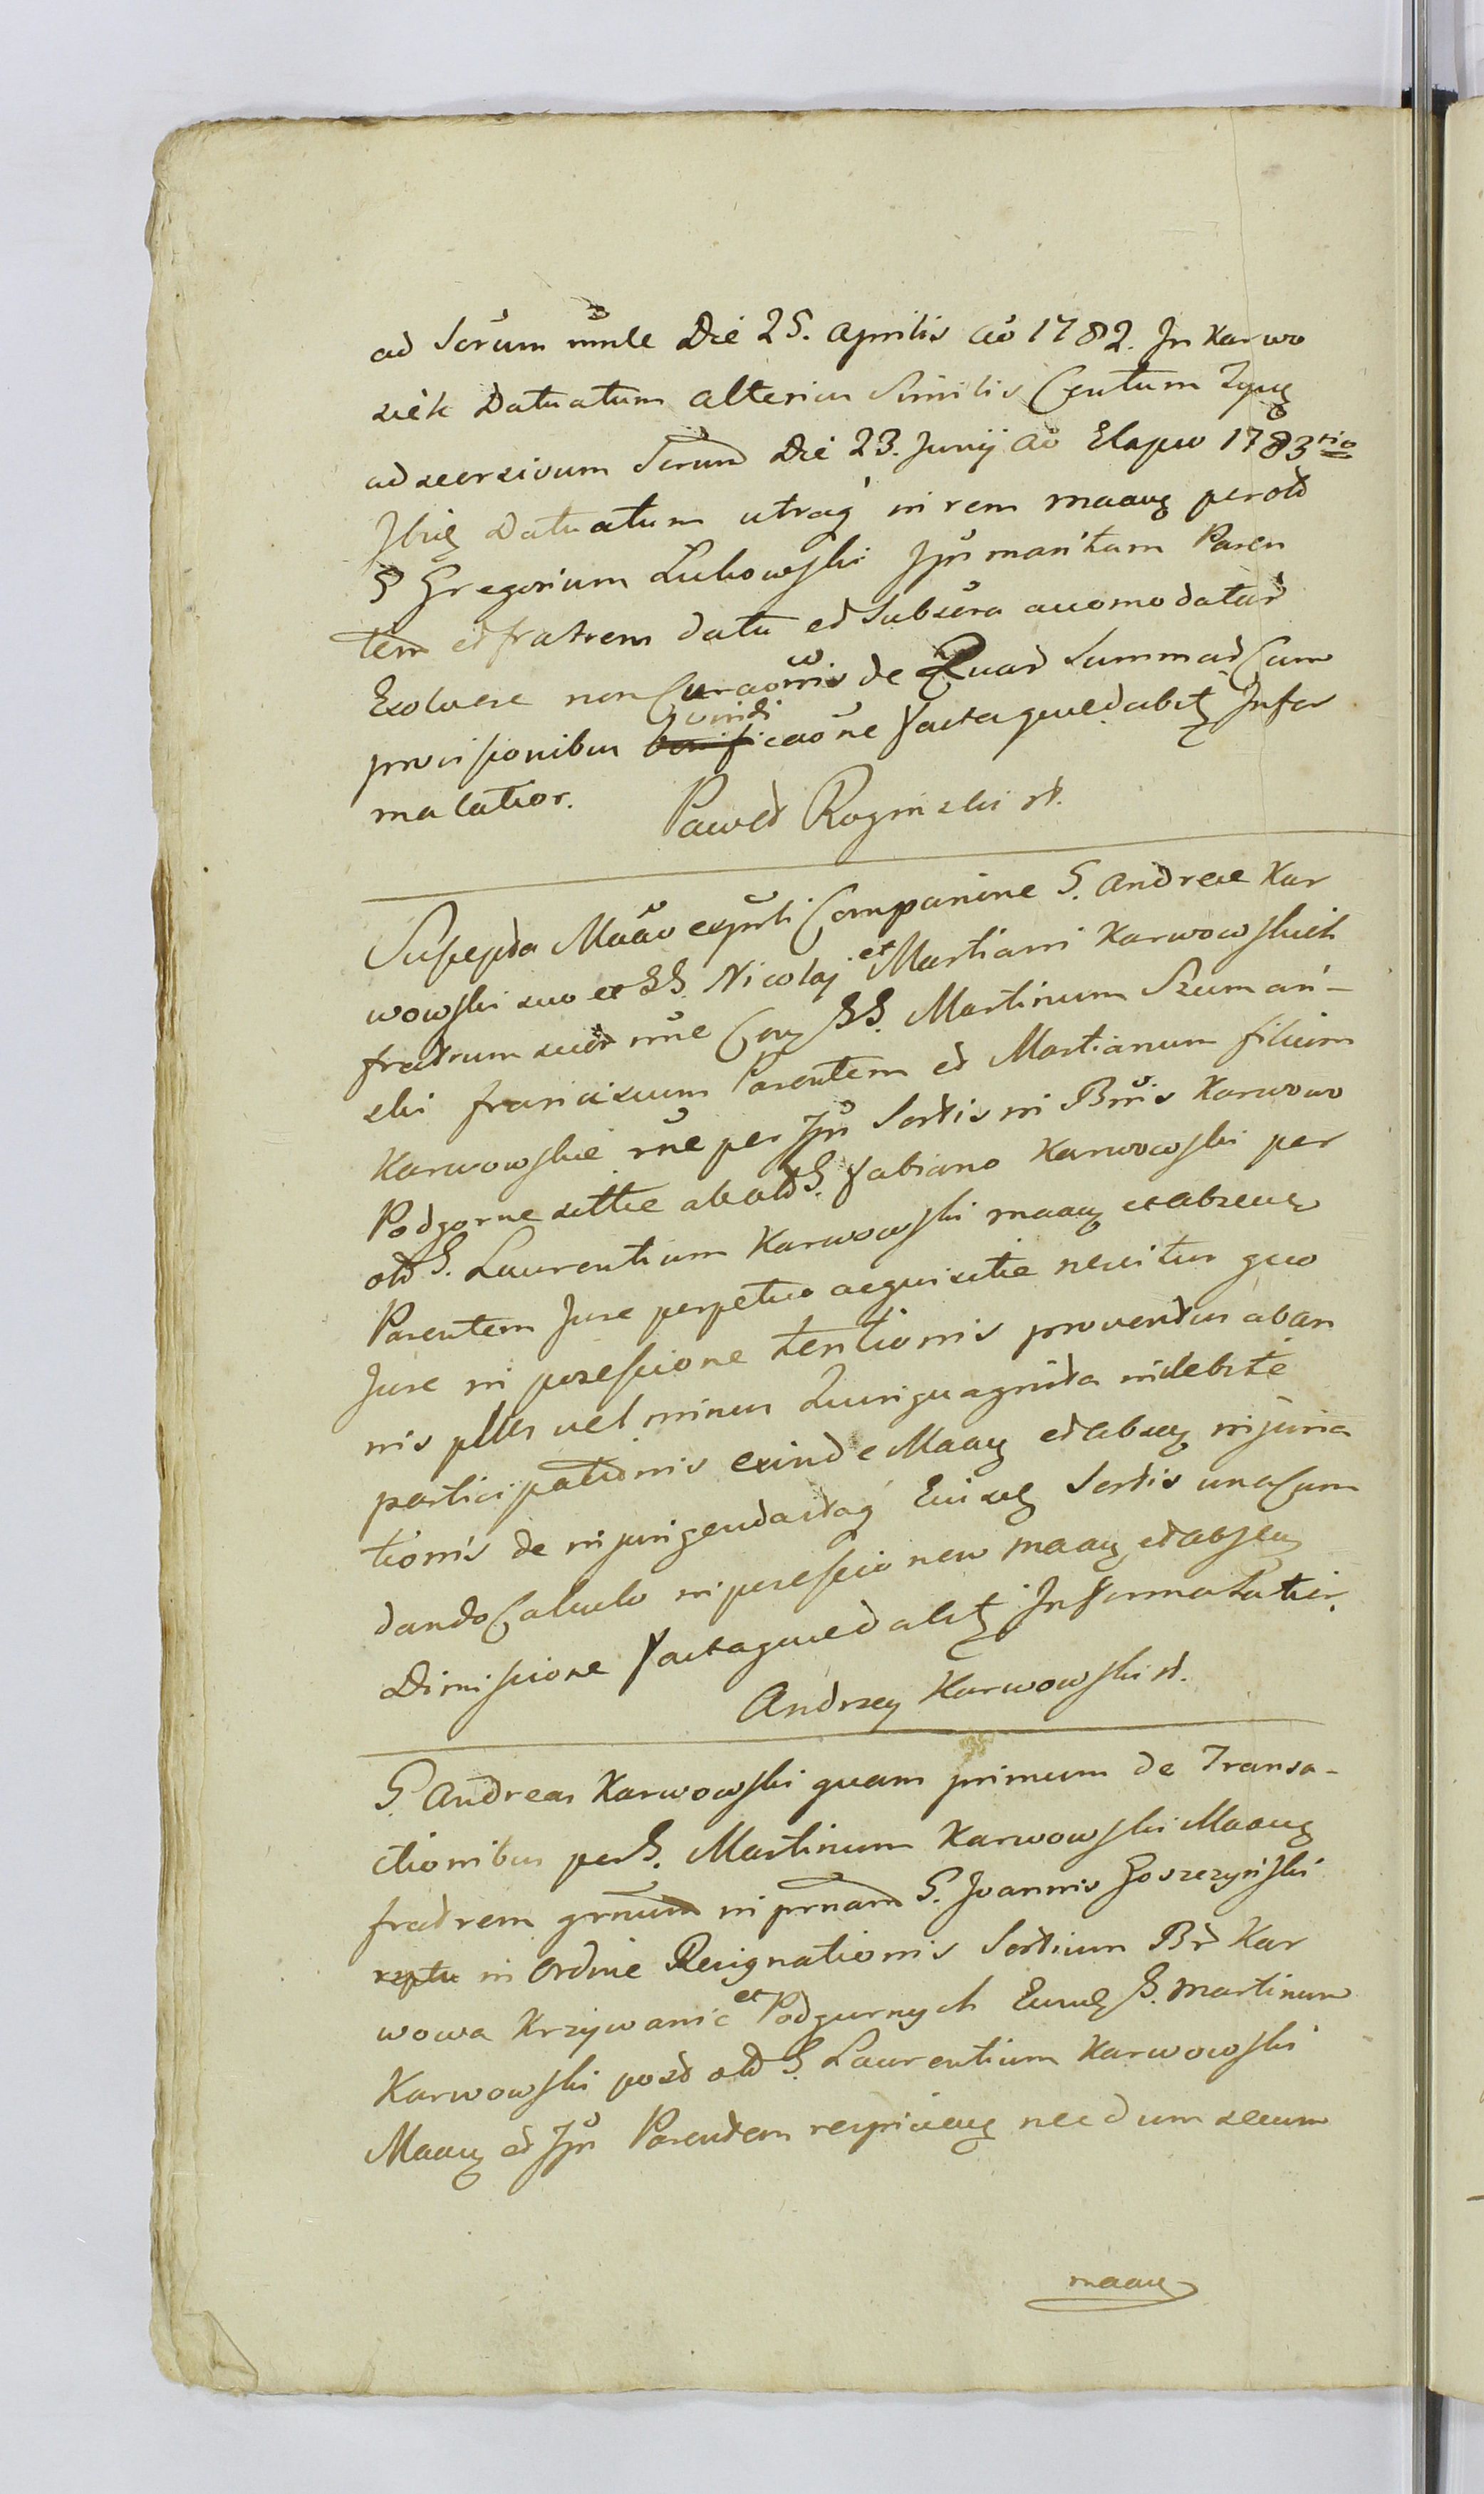 ad Scrum mnle Die 25. Aprilis ao 1782. In Karwo
siek Datuatum alterius Similis Centum
ad recursivum Scrum Die 23. Junij ao Elapso 1783tio
Ibiq Datuatum utraq in rem maaeq per olt
G Gregorium Lukowski Ipn maritum Paren
tem et fratrem datu et Subscra accomodatar
Exolvere non Curaoms de Quar Summar Cum
provisionibus vindicaone factaquedabit Infor
ma latior. Paweł Roginski st.
Suscepta Maao Companine G. Andreae Kar
wowski suo et GG. Nicolaj et Martiani Karwowskich
fratrum suor mne Con GG. Martinum Szumań-
ski franciscum Parentem et Martianum filium
Karwowskie rne per Ipn Sortis in Bnis Karwowo
Podgorne sittae ab olt G. Fabiano Karwowski per
olt G. Laurentium Karwowski maaeq et absenq
Parentem Jure perpetuo acquisitae nevitur quo
Jure in possessione tentionis proventus ab an
nis plus vel minus Quinquaginta indebite
participationis exinde Maaeq et absenq injuria
tionis de injurigendasq Eiusq Sortis una Cum
dando Calculo in possessionem maaeq et absenq
Dimissione factaquedabit Informa Latior.
Andrzey Karwowski st.
G Andreas Karwowski quam primum de Transa-
ctionibus per G. Martinum Karwowski Maaeq
fratrem grnum in prnam G. Joannis Goszczyński
rptu in Ordine Resignationis Sortium Br Kar
wowa Krzywanic et Podgurnych G. Martinum
Karwowski post olt G. Laurentium Karwowski
Maaeq et Ipn Parentem respicienq necdum secum
maaeq